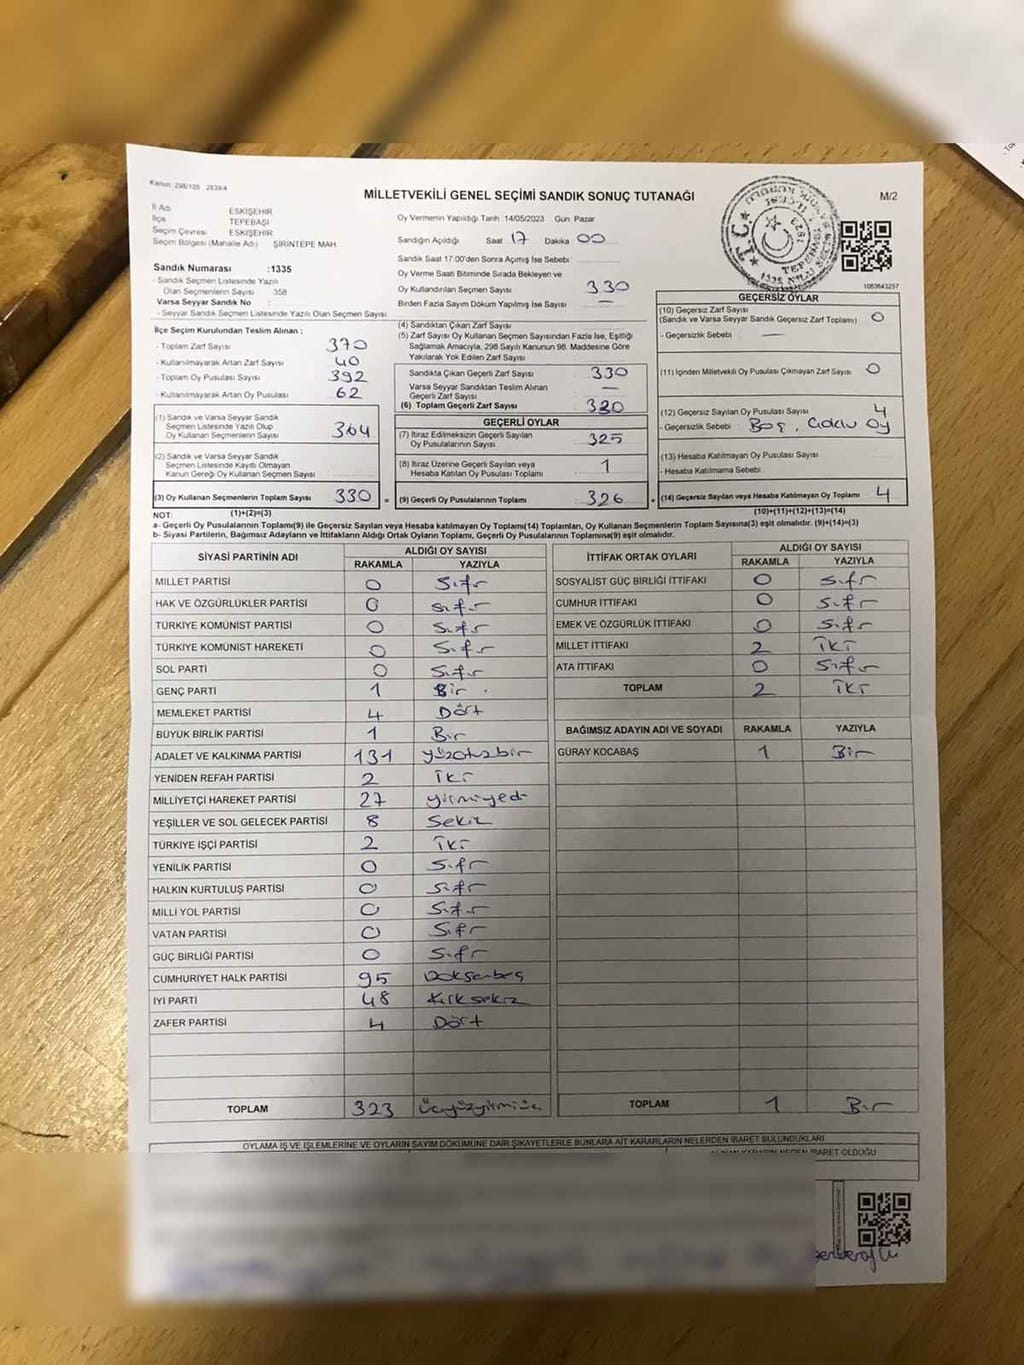 Kanun: 298/105 , 2839/4
MİLLETVEKİLİ GENEL SEÇİMİ SANDIK SONUÇ TUTANAĞI
M/2
İl Adı ESKİŞEHİR
İlçe TEPEBAŞI
Seçim Çevresi ESKİŞEHİR
Seçim Bölgesi (Mahalle Adı) ŞİRİNTEPE MAH.
Oy Vermenin Yapıldığı Tarih :14/05/2023 Gün: Pazar
Sandığın Açıldığı Saat 17 Dakika 00
Sandık Saat 17.00'den Sonra Açımış İse Sebebi :
Oy Verme Saati Bitiminde Sırada Bekleyen ve
Oy Kullandırılan Seçmen Sayısı 330
Birden Fazla Sayım Döküm Yapılmış İse Sayısı —
T.C.
1923
Sandık Numarası :1335
- Sandık Seçmen Listesinde Yazılı
Olan Seçmenlerin Sayısı 358
Varsa Seyyar Sandık No :
- Seyyar Sandık Seçmen Listesinde Yazılı Olan Seçmen Sayısı
1083643257
İlçe Seçim Kurulundan Teslim Alınan ;
- Toplam Zarf Sayısı 370
- Kullanılmayarak Artan Zarf Sayısı 40
- Toplam Oy Pusulası Sayısı 392
- Kullanılmayarak Artan Oy Pusulası 62
(1) Sandık ve Varsa Seyyar Sandık
Seçmen Listesinde Yazılı Olup
Oy Kullanan Seçmenlerin Sayısı 304
(2) Sandık ve Varsa Seyyar Sandık
Seçmen Listesinde Kayıtlı Olmayan
Kanun Gereği Oy Kullanan Seçmen Sayısı
(3) Oy Kullanan Seçmenlerin Toplam Sayısı 330 =
(1)+(2)=(3)
(4) Sandıktan Çıkan Zarf Sayısı
(5) Zarf Sayısı Oy Kullanan Seçmen Sayısından Fazla İse, Eşitliği
Sağlamak Amacıyla, 298 Sayılı Kanunun 98. Maddesine Göre
Yakılarak Yok Edilen Zarf Sayısı
Sandıkta Çıkan Geçerli Zarf Sayısı 330
Varsa Seyyar Sandıktan Teslim Alınan
Geçerli Zarf Sayısı —
(6) Toplam Geçerli Zarf Sayısı 330
GEÇERLİ OYLAR
(7) İtiraz Edilmeksizin Geçerli Sayılan
Oy Pusulalarının Sayısı 325
(8) İtiraz Üzerine Geçerli Sayılan veya
Hesaba Katılan Oy Pusulası Toplamı 1
(9) Geçerli Oy Pusulalarının Toplamı 326 +
GEÇERSİZ OYLAR
(10) Geçersiz Zarf Sayısı
(Sandık ve Varsa Seyyar Sandık Geçersiz Zarf Toplamı) 0
- Geçersizlik Sebebi : —
(11) İçinden Milletvekili Oy Pusulası Çıkmayan Zarf Sayısı 0
(12) Geçersiz Sayılan Oy Pusulası Sayısı 4
- Geçersizlik Sebebi : Boş, Oy
(13) Hesaba Katılmayan Oy Pusulası Sayısı
- Hesaba Katılmama Sebebi :
(14) Geçersiz Sayılan veya Hesaba Katılmayan Oy Toplamı 4
(10)+(11)+(12)+(13)=(14)
NOT:
a- Geçerli Oy Pusulalarının Toplamı(9) ile Geçersiz Sayılan veya Hesaba katılmayan Oy Toplamı(14) Toplamları, Oy Kullanan Seçmenlerin Toplam Sayısına(3) eşit olmalıdır. (9)+(14)=(3)
b- Siyasi Partilerin, Bağımsız Adayların ve İttifakların Aldığı Oy Ortak Oyların Toplamı, Geçerli Oy Pusulalarının Toplamına(9) eşit olmalıdır.
SİYASİ PARTİNİN ADI ALDIĞI OY SAYISI
RAKAMLA YAZIYLA
MİLLET PARTİSİ 0 Sıfır
HAK VE ÖZGÜRLÜKLER PARTİSİ 0 Sıfır
TÜRKİYE KOMÜNİST PARTİSİ 0 Sıfır
TÜRKİYE KOMÜNİST HAREKETİ 0 Sıfır
SOL PARTİ 0 Sıfır
GENÇ PARTİ 1 Bir
MEMLEKET PARTİSİ 4 Dört
BÜYÜK BİRLİK PARTİSİ 1 Bir
ADALET VE KALKINMA PARTİSİ 131 yüzotuzbir
YENİDEN REFAH PARTİSİ 2 İki
MİLLİYETÇİ HAREKET PARTİSİ 27 yirmiyedi
YEŞİLLER VE SOL GELECEK PARTİSİ 8 Sekiz
TÜRKİYE İŞÇİ PARTİSİ 2 İki
YENİLİK PARTİSİ 0 Sıfır
HALKIN KURTULUŞ PARTİSİ 0 Sıfır
MİLLİ YOL PARTİSİ 0 Sıfır
VATAN PARTİSİ 0 Sıfır
GÜÇ BİRLİĞİ PARTİSİ 0 Sıfır
CUMHURİYET HALK PARTİSİ 95 Doksanbeş
İYİ PARTİ 48 Kırksekiz
ZAFER PARTİSİ 4 Dört
TOPLAM 323 Üçyüzyirmiüç
İTTİFAK ORTAK OYLARI ALDIĞI OY SAYISI
RAKAMLA YAZIYLA
SOSYALİST GÜÇ BİRLİĞİ İTTİFAKI 0 Sıfır
CUMHUR İTTİFAKI 0 Sıfır
EMEK VE ÖZGÜRLÜK İTTİFAKI 0 Sıfır
MİLLET İTTİFAKI 2 İki
ATA İTTİFAKI 0 Sıfır
TOPLAM 2 İki
BAĞIMSIZ ADAYIN ADI VE SOYADI RAKAMLA YAZIYLA
GÜRAY KOCABAŞ 1 Bir
TOPLAM 1 Bir
OYLAMA İŞ VE İŞLEMLERİNE VE OYLARIN SAYIM DÖKÜMÜNE DAİR ŞİKAYETLERLE BUNLARA AİT KARARLARIN NELERDEN İBARET BULUNDUKLARI
ALINAN KARARIN NEDEN İBARET OLDUĞU